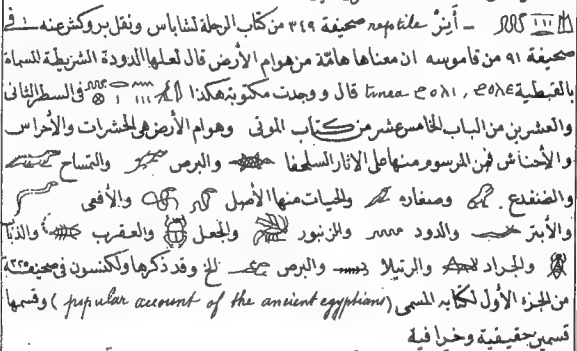 – أينز reptile صحيفة ٣٤٩ من كتاب الرحلة لشاباس ونقل بروكش عنه في
صحيفة ٩١ من قاموسه ان معناها هامّة من هوام الأرض قال لعلها الدودة الشريطة المسماة
بالقبطية tinea قال ووجدت مكتوبة هكذا في السطر الثاني
والعشرين من الباب الخامس عشر من كتاب الموتى وهوام الأرض هى الحشرات والأحراس
والأحناش فمن المرسوم منها على الاثار السلحفا والبرص والتمساح
والضفدع وصغاره والحيات منها الأصل والأفعى
والأبتر والدود والزنبور والجعل والعقرب والذباب
والجراد والرتيلا والبرص الخ وقد ذكرها ولكنسون فى صحيفة
من الجزء الأول لكتابه المسمى (popular account of the ancient egyptians) وقسمها
قسمين حقيقية وخرافية